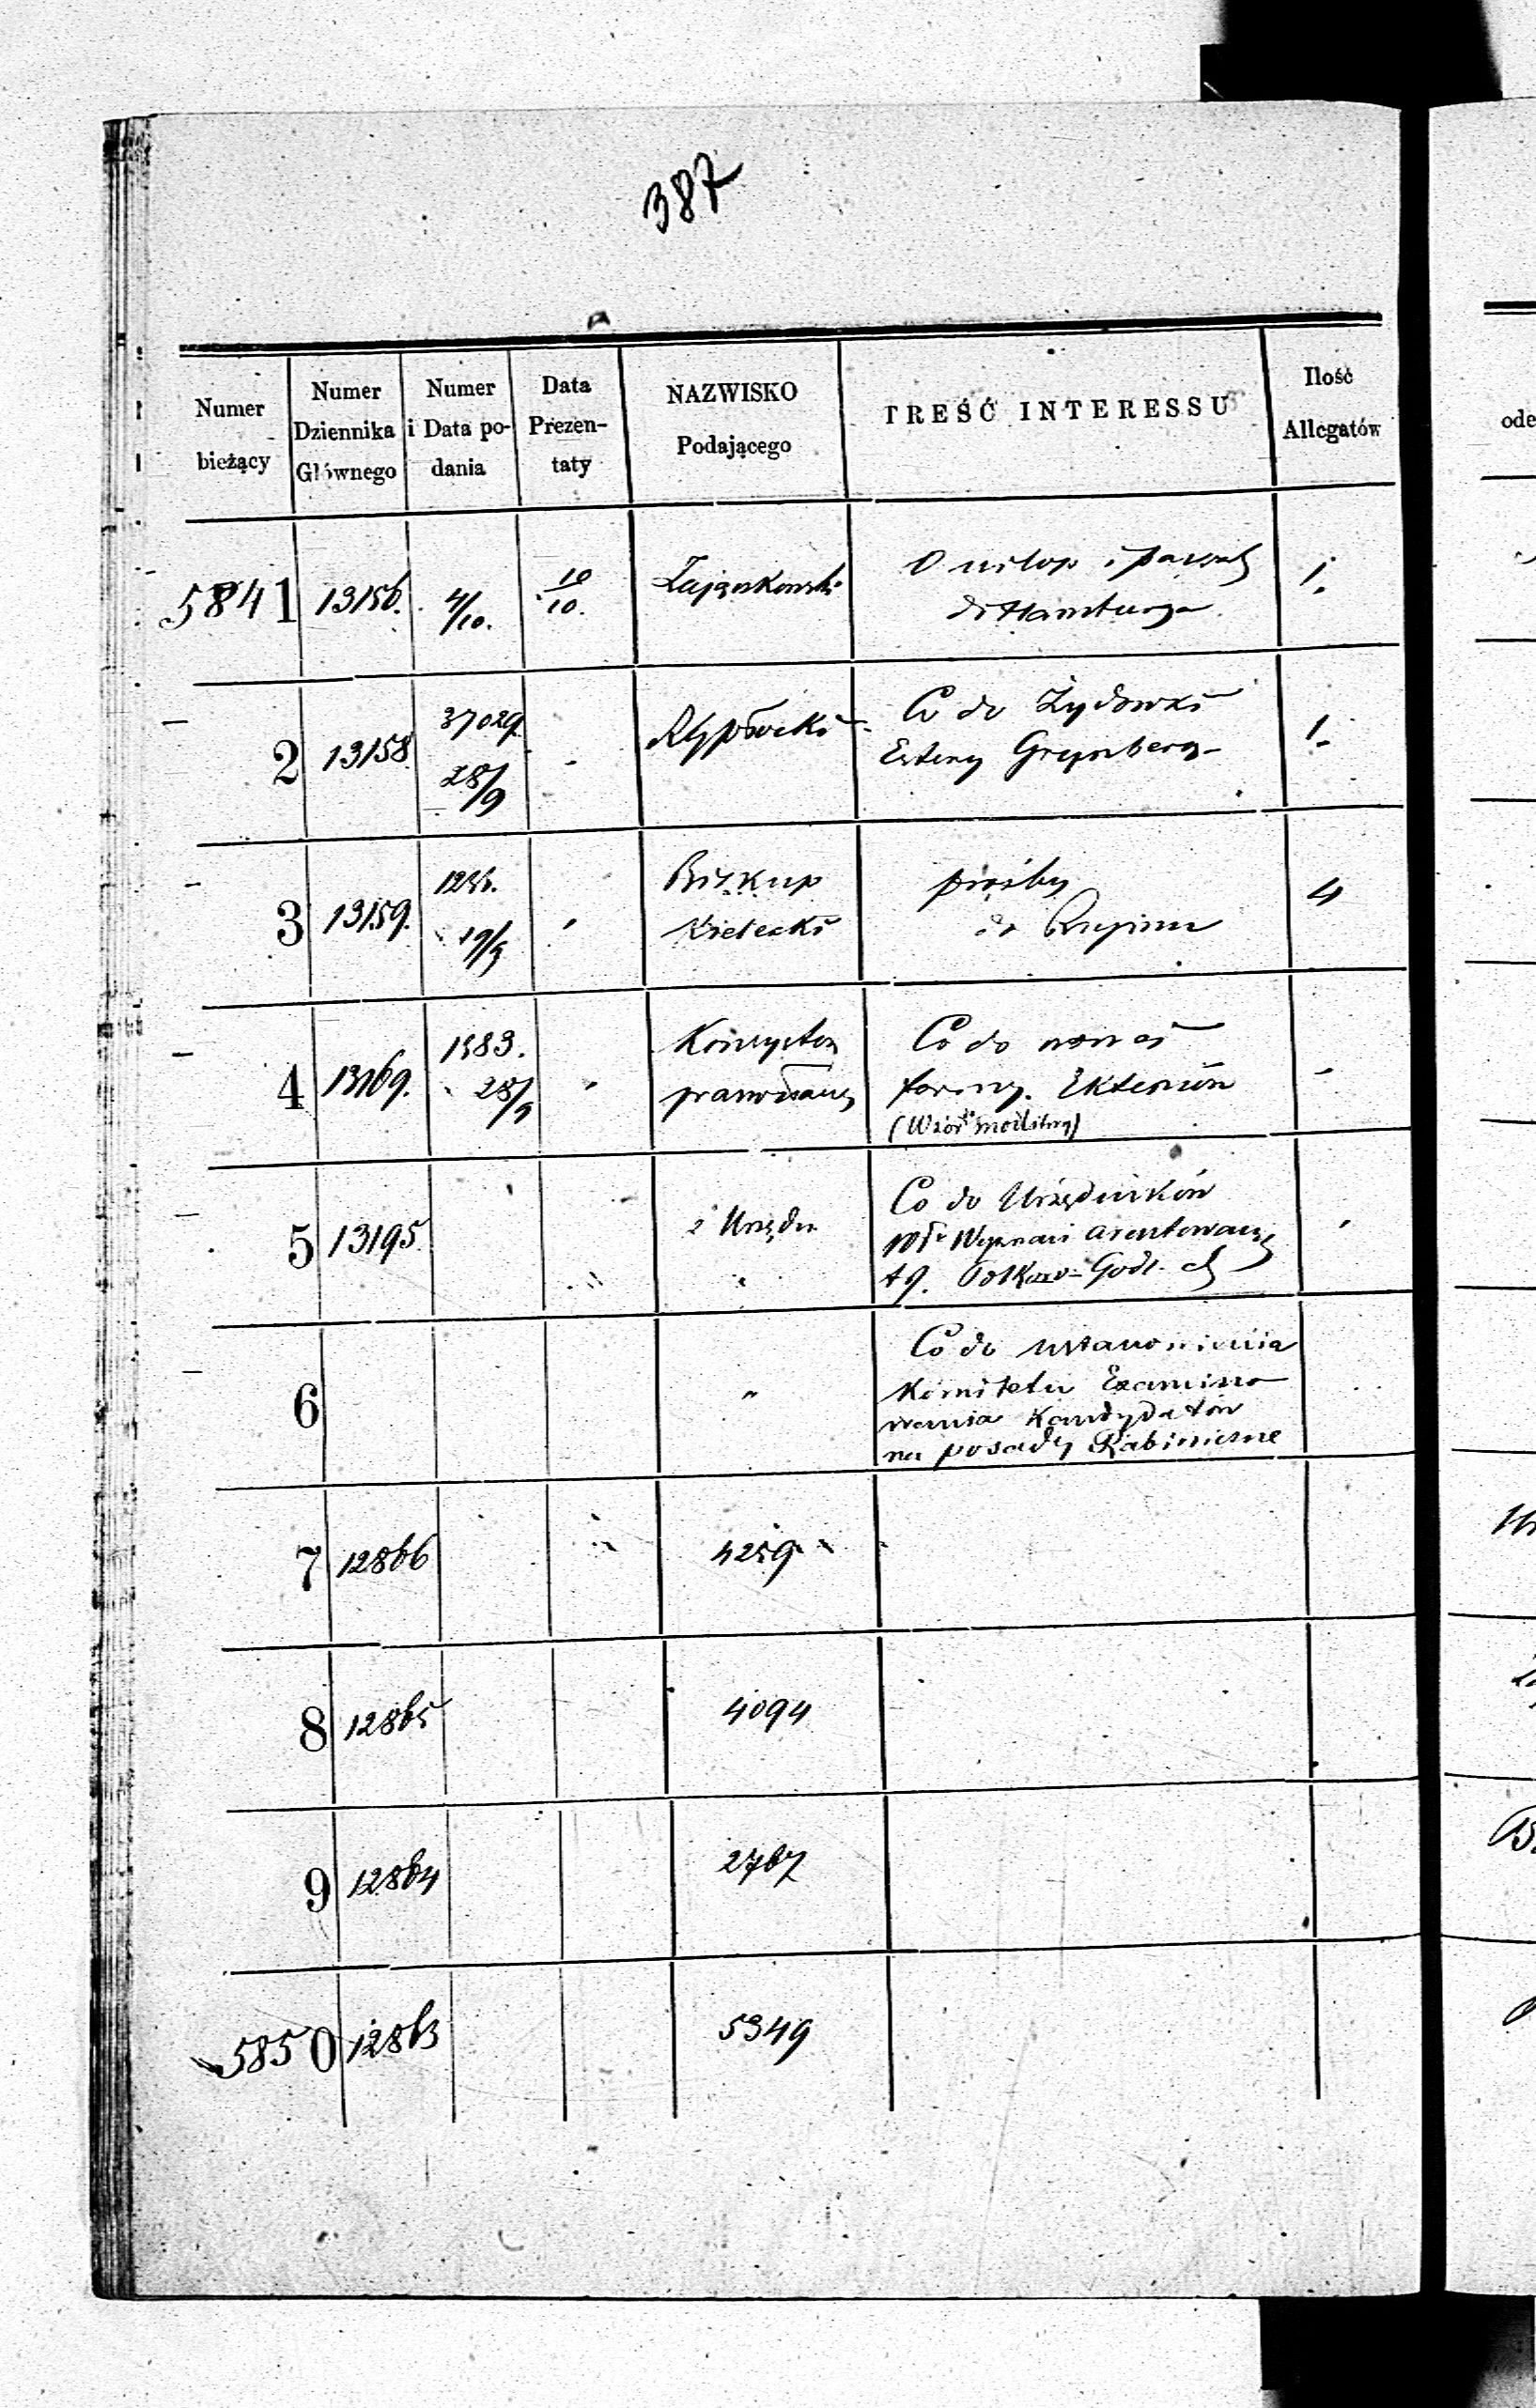 387
Numer bieżący
Numer Dziennika Głównego
Numer i Data podania
Data Prezentaty
NAZWISKO Podającego
TREŚĆ INTERESSU
Ilość Allegatów
ode
5841 13156. 4/10. 10/10. Zajączkowski O urlop i paszp
do Hamburga 1.
2 13158 37029. 28/9 Co do Żydówki
Estery Grynberg 1.
3 13159. 19/9 Biskup
Kielecki
prośby
do Rzymu 4
4 13169. 1583. 28/9 Konsystorz
prawosławny
Co do nowéj
formy Ekteniów
(Wzór modlitwy)
5 13195 z Urzędu Co do Urzędników
Wyznań
6 " Co do ustanowienia
Komitetu Examino
wania Kandydatów
na posady Rabiniczne
7 12866 4259
8 12865 4094
9 12864 2767
5850 12863 5349